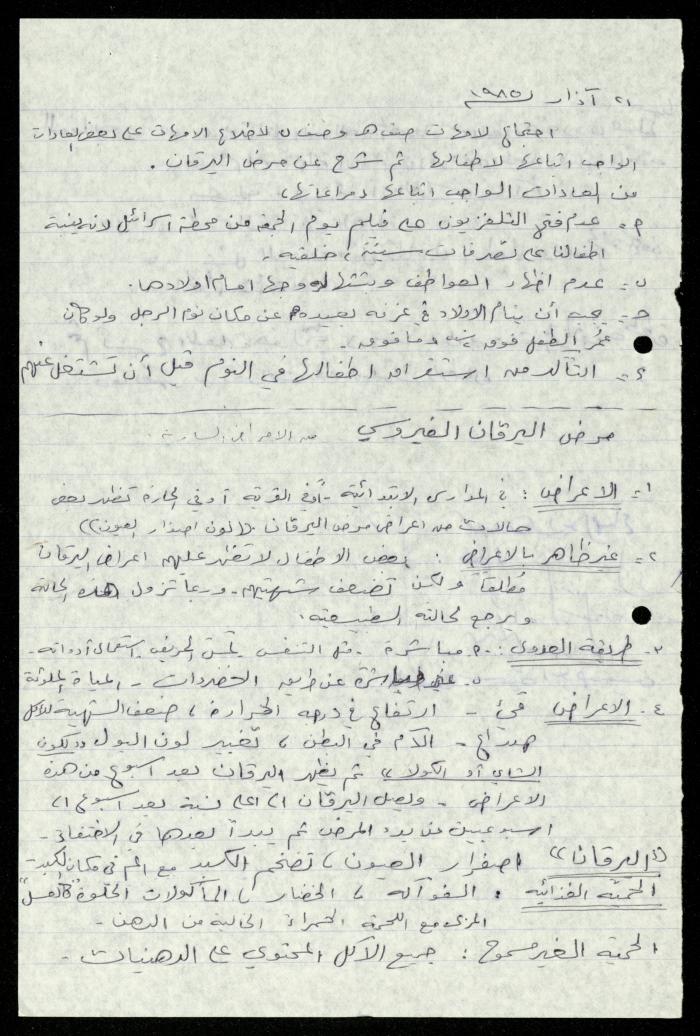 ٢١ آذار ١٩٨٥
اجتماع لامهات صف هـ وصف ل لاطلاع الامهات على بعض العادات
الواجب اتباعها لاطفالها ثم شرح عن مرض اليرقان .
من العادات الواجب اتباعها ومراعاتها،
٢. عدم فتح التلفزيون على فيلم يوم الجمعة من محطة اسرائيل لانه ينبه
اطفالنا على تصرفات سيئة، خلقيه -
ب: عدم اظهار العواطف وبثها لزوجها امام اولادها.
ج: يجب أن ينام الاولاد في غرفه بعيده عن مكان نوم الرجل ولو كان
عمر الطفل فوق وما فوق.
٤: التأكد من استغراق اطفالها في النوم قبل أن تنشغل عنهم
مرض اليرقان الفيروسي من الامراض السارية.
١- الاعراض: في المدارس الابتدائية - أو في القرية أو في الحارة تظهر بعض
حالات من اعراض مرض اليرقان ((لون اصفرار العيون))
٢- غير ظاهر بالاعراض: بعض الاطفال لا تظهر عليهم اعراض اليرقان
مطلقاً ولكن تضعف شهيتهم - وربما تزول هذه الحالة
ويرجع لحالته الطبيعية.
٣- طريقة العدوى: ٢- مباشرة - مثل التنفس لمس المريض استعمال أدواته -
ب- غير مباشرة عن طريق الخضروات - المياة الملوثة
٤- الاعراض قيئ - ارتفاع في درجه الحرارة، ضعف الشهية للاكل
صداع - الآم في البطن، تغيير لون البول ككون
الشاي أو الكولا، ثم يظهر اليرقان بعد اسبوع من هذه
الاعراض - ويصل اليرقان الى اعلى نسبة بعد اسبوع الى
اسبوعيين من بدء المرض ثم يبدأ بعدها في الاختفاء -
((اليرقان)) اصفرار العيون، تضخم الكبد مع الم في مكان الكبد
الحمية الغذائية: الفوآكه، الخضار، المأكولات الحلوة "كالعسل"
المربى مع اللحمة الحمراء الخالية من الدهن -
الحمية الغير مسموح: جميع الاكل المحتوي على الدهنيات -